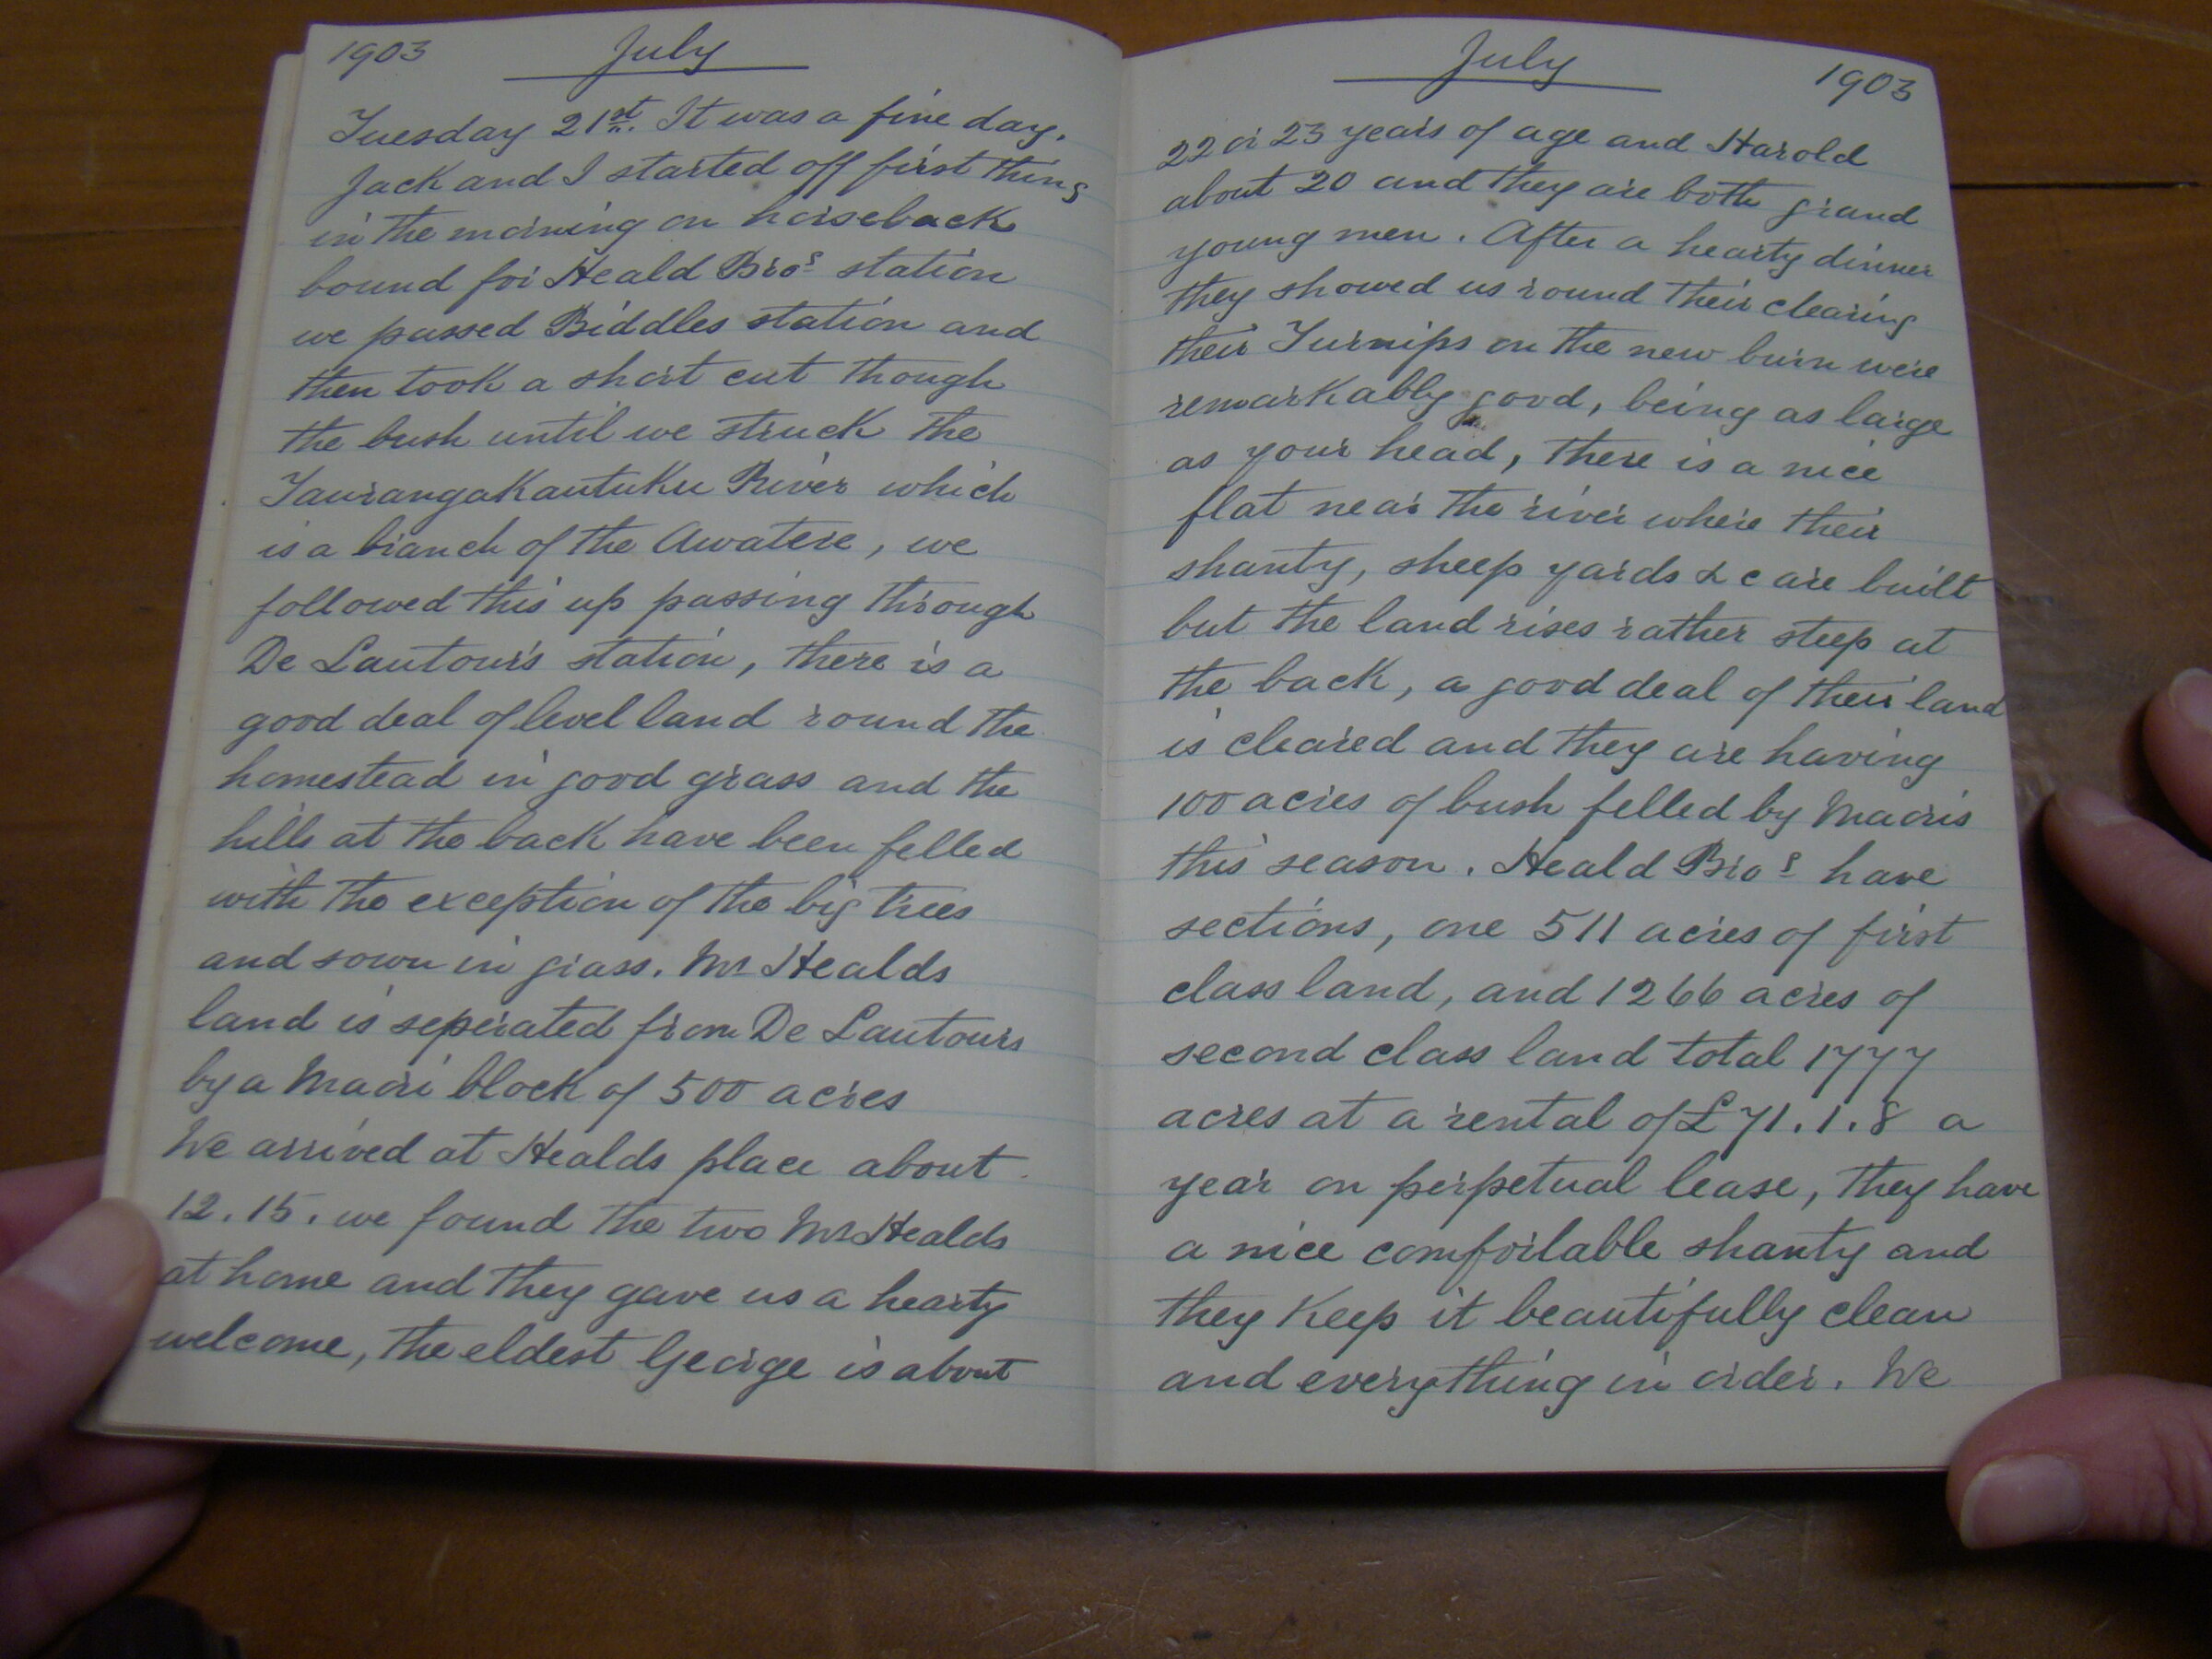 1903 July
Tuesday 21st. It was a fine day.
Jack and I started off first thing
in the morning on horseback
bound for Heald Bros station
we passed Biddles station and
then took a short cut though
the bush until we struck the
Taurangakautuku River which
is a branch of the Awatere, we
followed this up passing through
De Lautour's station, there is a
good deal of level land round the
homestead in good grass and the
hills at the back have been felled
with the exception of the big trees
and sown in grass. Mr Healds
land is seperated from De Lautours
by a Maori block of 500 acres
We arrived at Healds place about
12.15. we found the two Mr Healds
at home and they gave us a hearty
welcome, the eldest George is about
July 1903
22 or 23 years of age and Harold
about 20 and they are both grand
young men. After a hearty dinner
they showed us round their clearing
their Turnips on the new burn were
remarkably good, being as large
as your head, there is a nice
flat near the river where their
shanty, sheep yards &c are built
but the land rises rather steep at
the back, a good deal of their land
is cleared and they are having
100 acres of bush felled by Maoris
this season. Heald Bros have
sections, one 511 acres of first
class land, and 1266 acres of
second class land total 1777
acres at a rental of £71.1.8 a
year on perpetual lease, they have
a nice comfortable shanty and
they keep it beautifully clean
and everything in order. We